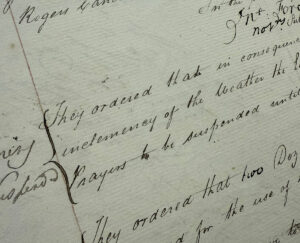 Rogers
They ordered that in consequen
inclemency of the Weather the
Prayers to be suspended until
They ordered that two Dog
for the use of